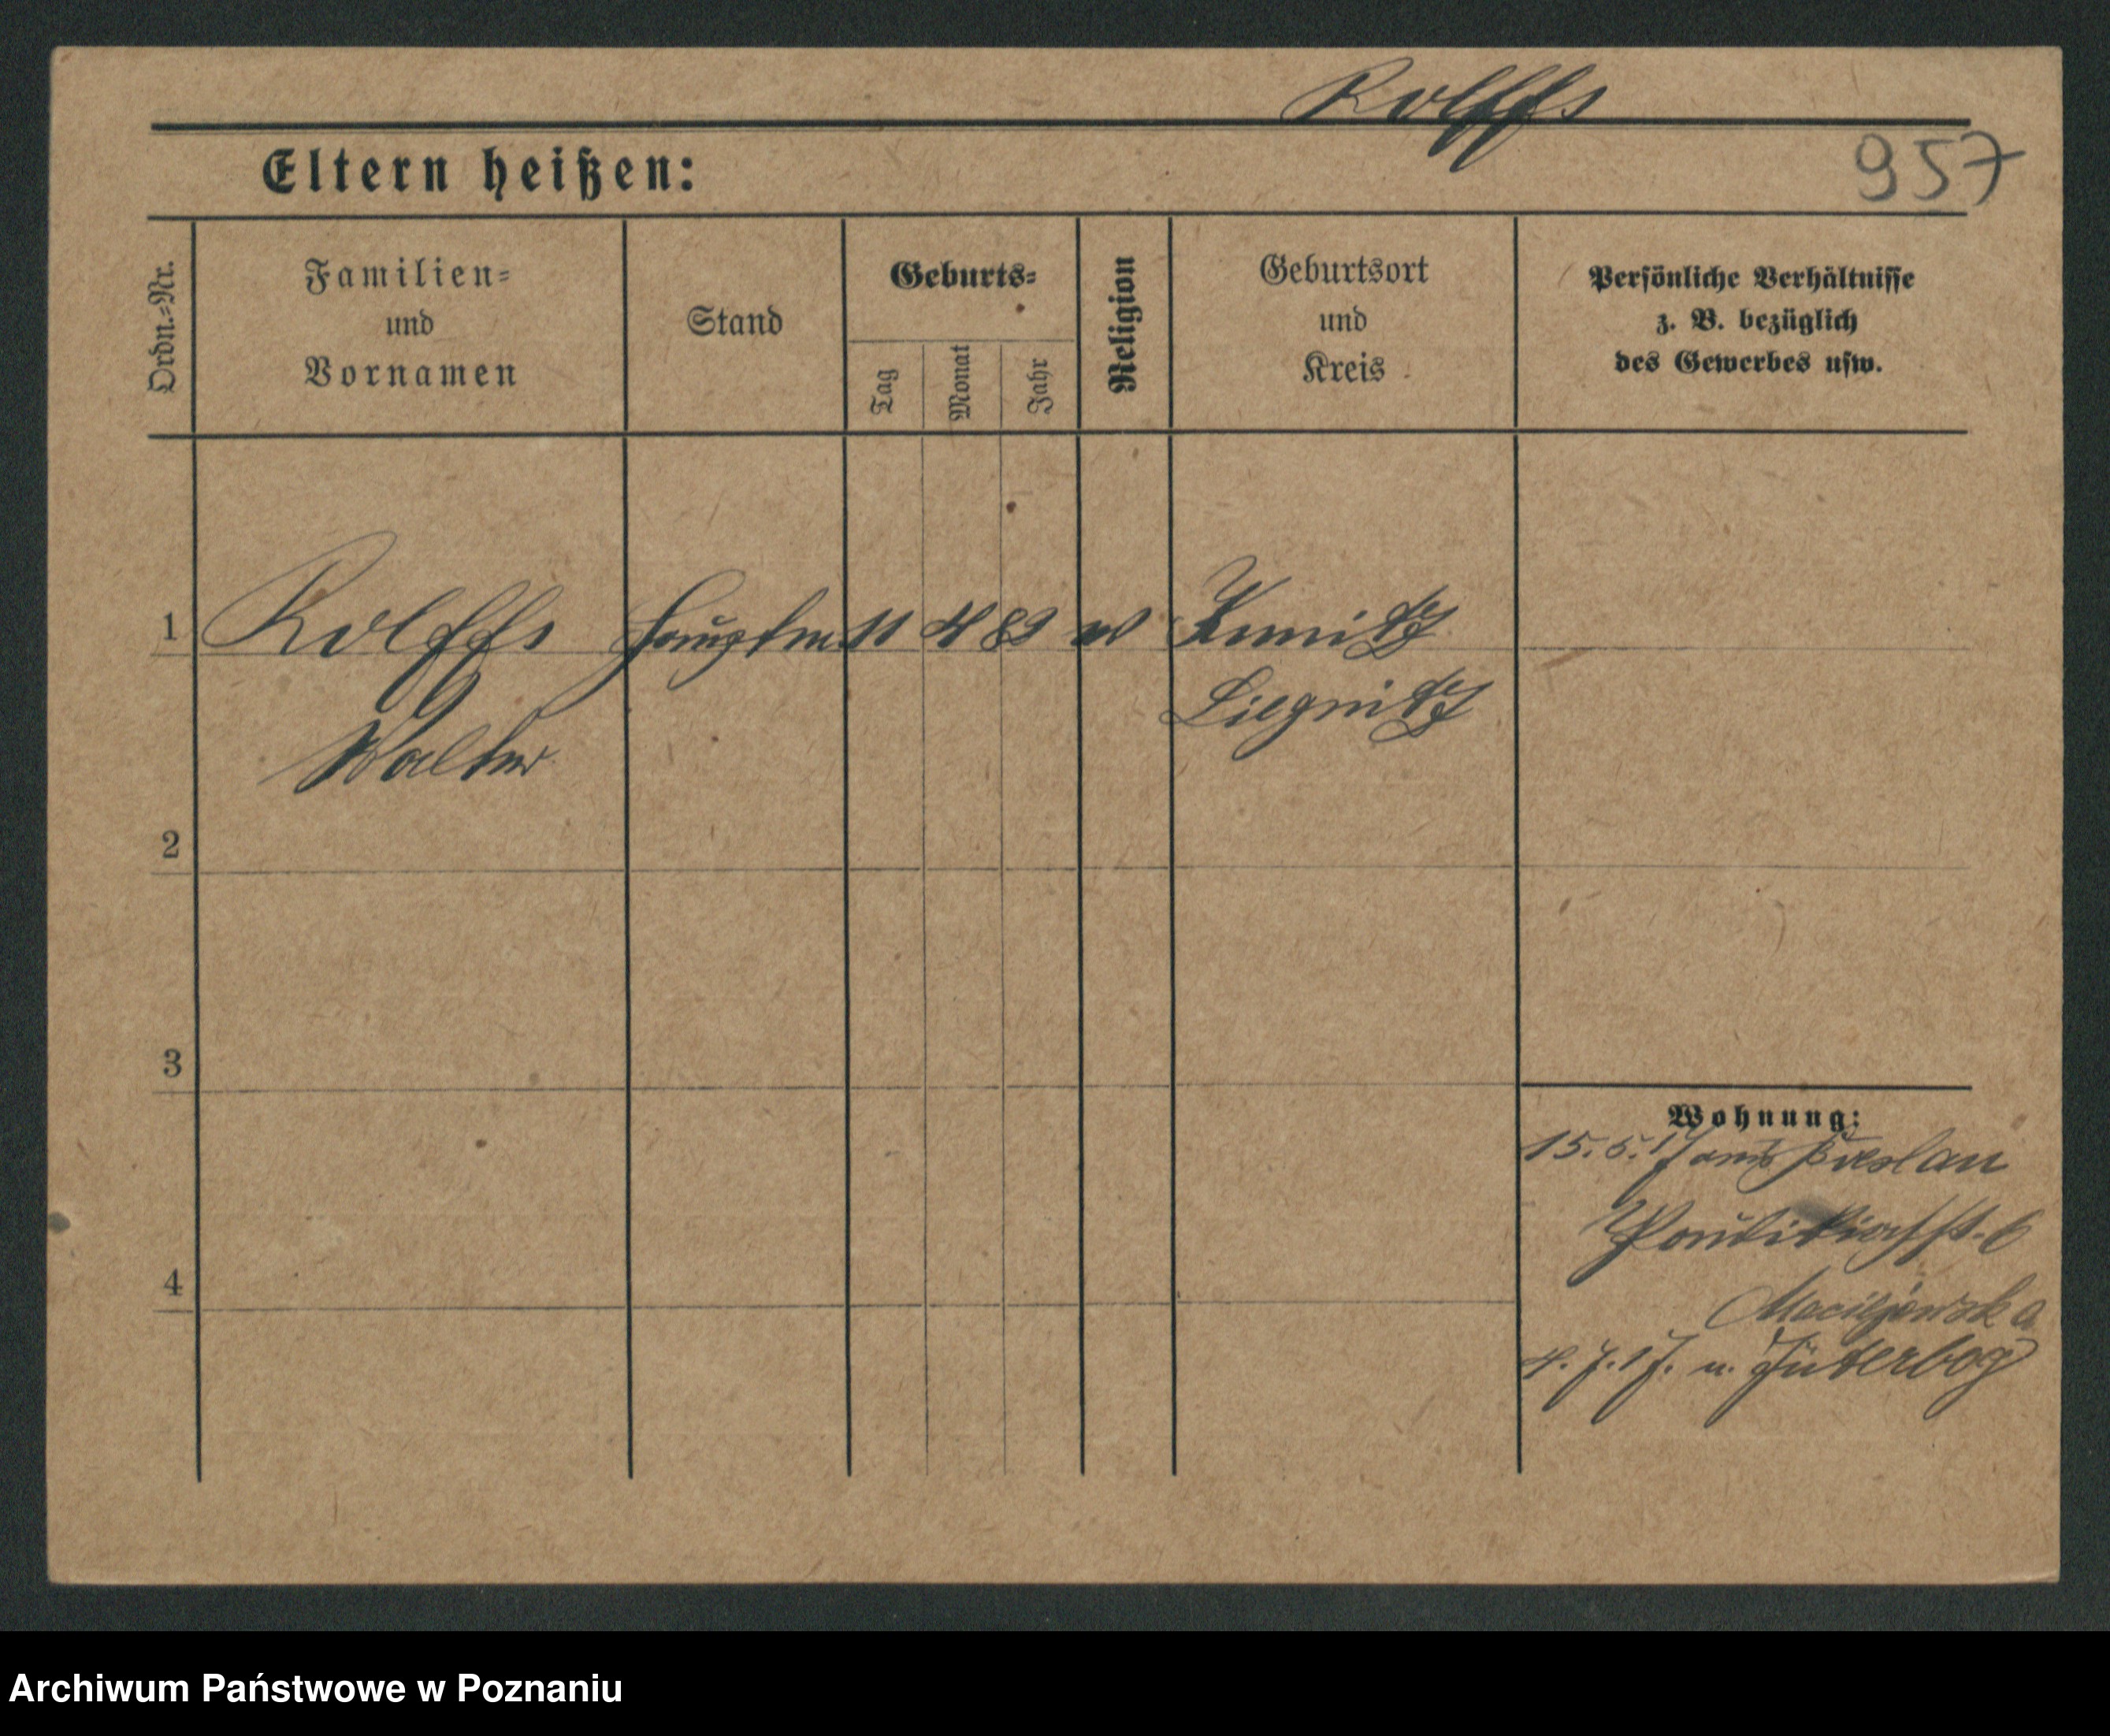 Rolffs
957
Eltern heißen:
Ordn.=Nr.
Familien=
und
Vornamen
Stand
Geburts=
Tag
Monat
Jahr
Religion
Geburtsort
und
Kreis
Persönliche Verhältnisse
z. B. bezüglich
des Gewerbes usw.
1 Rolffs Hauptm 11 4 89 Kunitz
Liegnitz
Walter
2
3
4
Wohnung:
15. 5. 17 aus Breslau
6
Maciejewska
4. 7. 17. n. Jüterbog
Archiwum Państwowe w Poznaniu